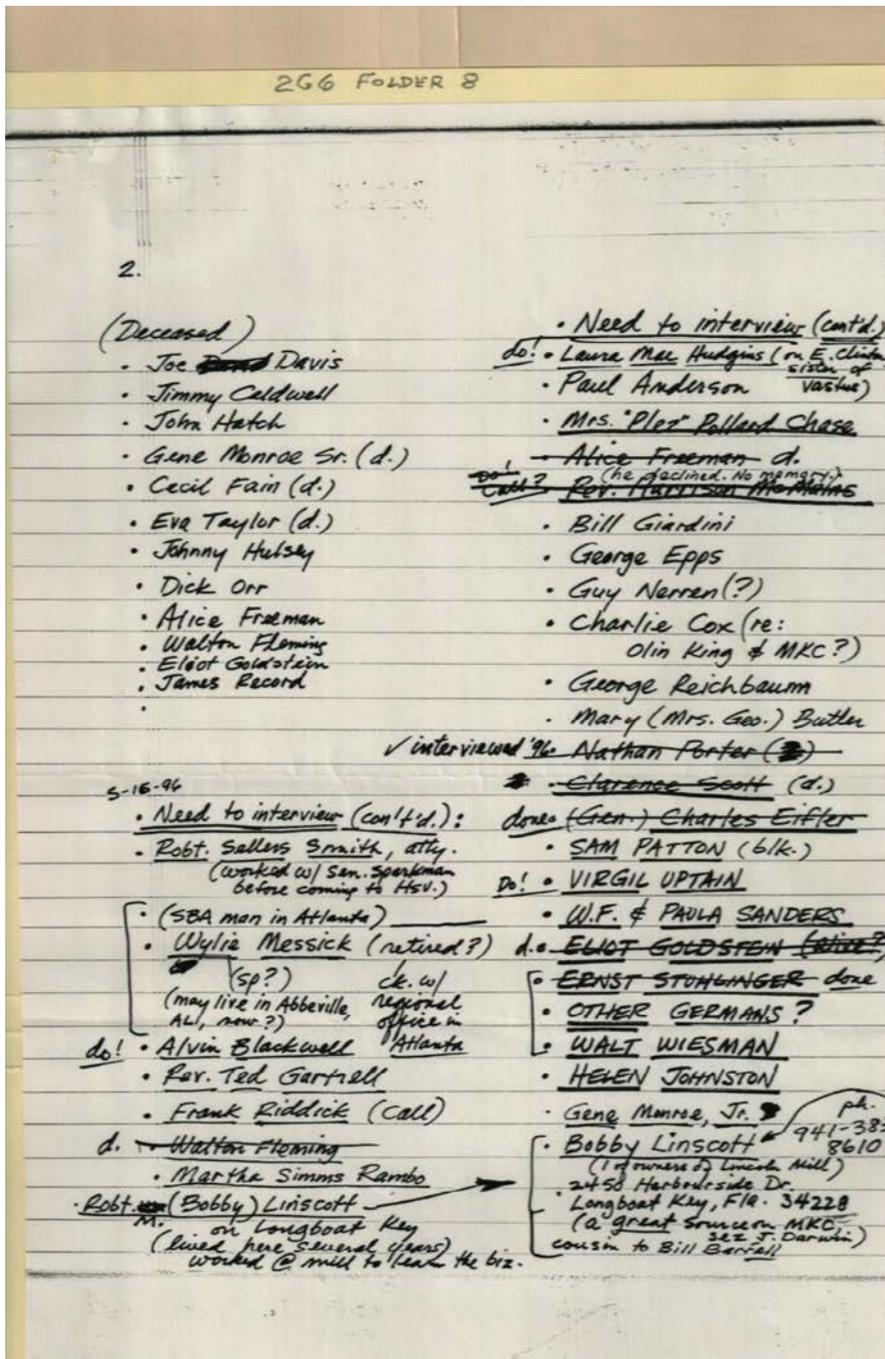 2G6 FOLDER 8
2.
(Deceased)
• Joe Davis
• Jimmy Caldwell
• John Hatch
• Gene Monroe Sr. (d.)
• Cecil Fain (d.)
• Eva Taylor (d.)
• Johnny Hulsey
• Dick Orr
• Alice Freeman
• Walton Fleming
• Eliot Goldstein
• James Record
•
5-15-96
• Need to interview (con't'd.):
• Robt. Sellers Smith, atty.
(worked w/ Sen. Sparkman
before coming to HSV.)
• (SBA man in Atlanta)
• Wylie Messick (retired?)
(sp?) ck. w/
(may live in Abbeville, regional
AL, now?) office in
do! • Alvin Blackwell Atlanta
• Rev. Ted Gartrell
• Frank Riddick (Call)
d. • Walton Fleming
• Martha Simms Rambo
• Robt. M. (Bobby) Linscott
on Longboat Key
(lived here several years)
worked @ mill to learn the biz.
• Need to interview (cont'd.)
do! • Laura Mae Hudgins (on E. Clinton
sister of
Vastue)
• Paul Anderson
• Mrs. "Plez" Pollard Chase
• Alice Freeman d.
(he declined. No memory.)
Do! Call? Rev. Harrison McMains
• Bill Giardini
• George Epps
• Guy Nerren (?)
• Charlie Cox (re:
Olin King & MKC?)
• George Reichbaum
• Mary (Mrs. Geo.) Butler
✓ interviewed '96 • Nathan Porter
• Clarence Scott (d.)
done • (Gen.) Charles Eifler
• SAM PATTON (blk.)
Do! • VIRGIL UPTAIN
• W.F. & PAULA SANDERS
d. • ELIOT GOLDSTEIN (alive?)
• ERNST STUHLINGER done
• OTHER GERMANS?
• WALT WIESMAN
• HELEN JOHNSTON
• Gene Monroe, Jr.
ph.
• Bobby Linscott 941-383
8610
(1 of owners of Lincoln Mill)
2450 Harbourside Dr.
Longboat Key, Fla. 34228
(a great source on MKC,
sez J. Darwin)
cousin to Bill Barrell